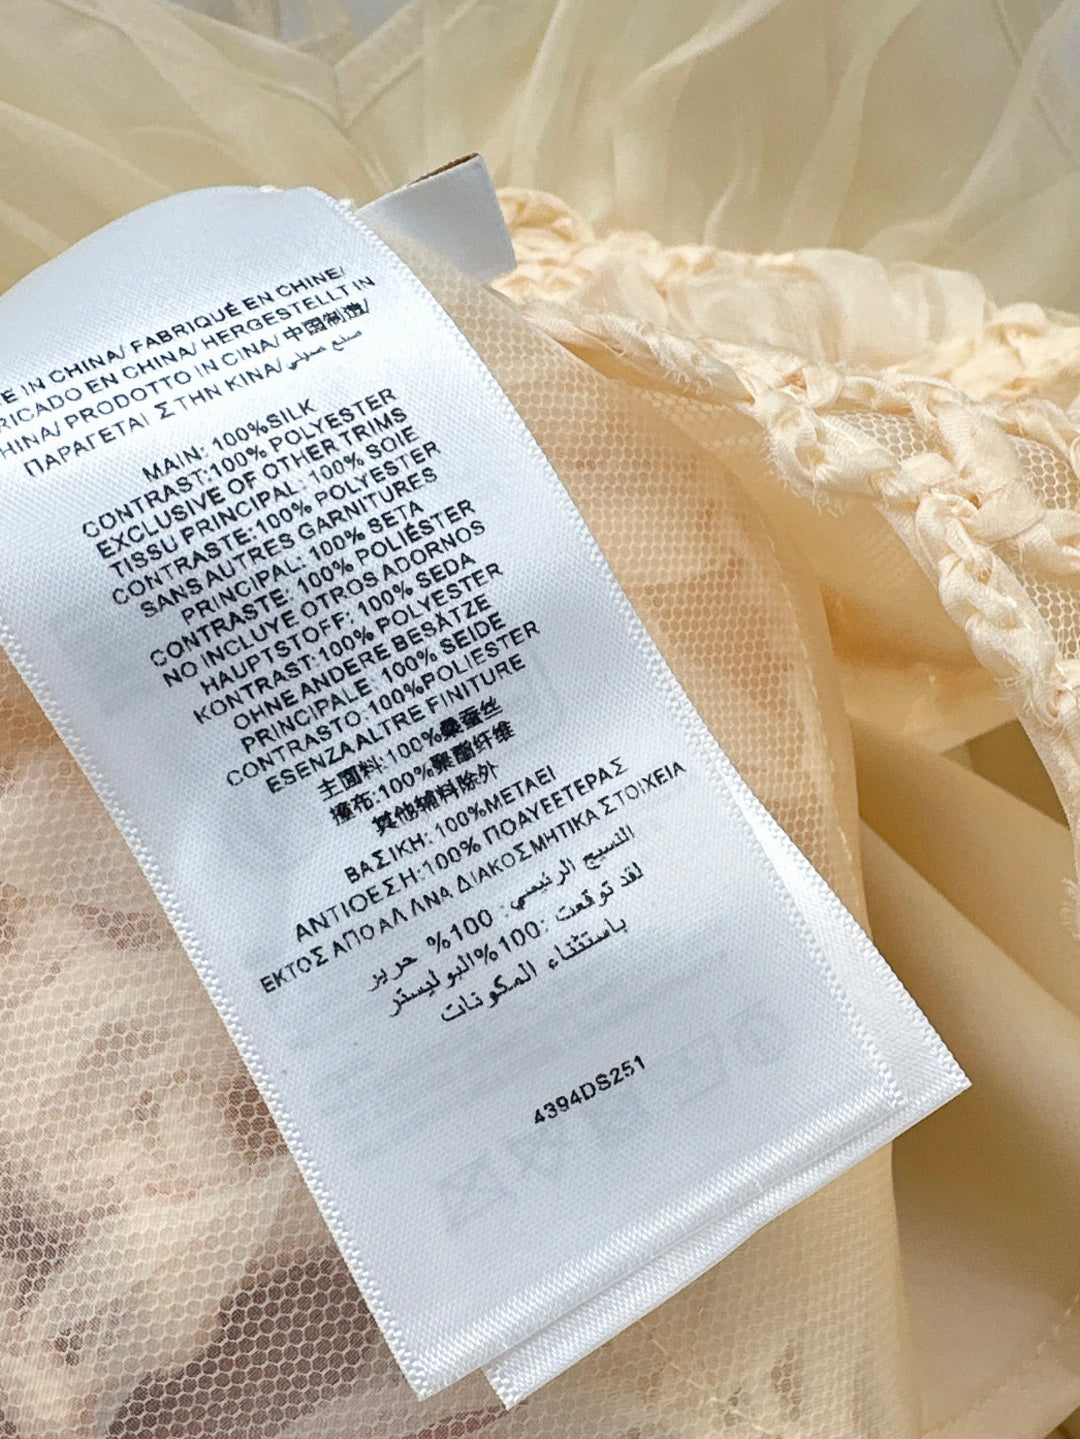 E IN CHINA/ FABRIQUÉ EN CHINE/
RICADO EN CHINA/ HERGESTELLT IN
HINA/ PRODOTTO IN CINA/ 中国制造/
ΠΑΡΑΓΕΤΑΙ ΣΤΗΝ ΚΙΝΑ/
MAIN: 100%SILK
CONTRAST:100% POLYESTER
EXCLUSIVE OF OTHER TRIMS
TISSU PRINCIPAL: 100% SOIE
CONTRASTE:100% POLYESTER
SANS AUTRES GARNITURES
PRINCIPAL: 100% SETA
CONTRASTE: 100% POLIÉSTER
NO INCLUYE OTROS ADORNOS
HAUPTSTOFF: 100% SEDA
KONTRAST:100% POLYESTER
OHNE ANDERE BESÄTZE
PRINCIPALE: 100% SEIDE
CONTRASTO:100%POLIESTER
ESENZAALTRE FINITURE
主面料:100%桑蚕丝
撞布:100%聚酯纤维
其他辅料除外
ΒΑΣΙΚΗ: 100%ΜΕΤΑΕΙ
ΑΝΤΙΟΕΣΗ:100% ΠΟΑΥΕΕΤΕΡΑΣ
ΕΚΤΟΣ ΑΠΟ ΑΛ ΛΝΑ ΔΙΑΚΟΣΜΗΤΙΚΑ ΣΤΟΙΧΕΙΑ
النسيج الرئيسي: 100% حرير
لقد توقعت :100%البوليستر
باستثناء المكونات
4394DS251